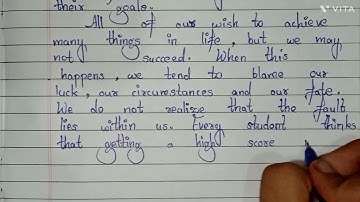 their goals.
All of our wish to achieve
many things in life, but we may
not succeed. When this
happens, we tend to blame our
luck, our circumstances and our fate.
We do not realize that the fault
lies within us. Every student thinks
that getting a high score
VITA